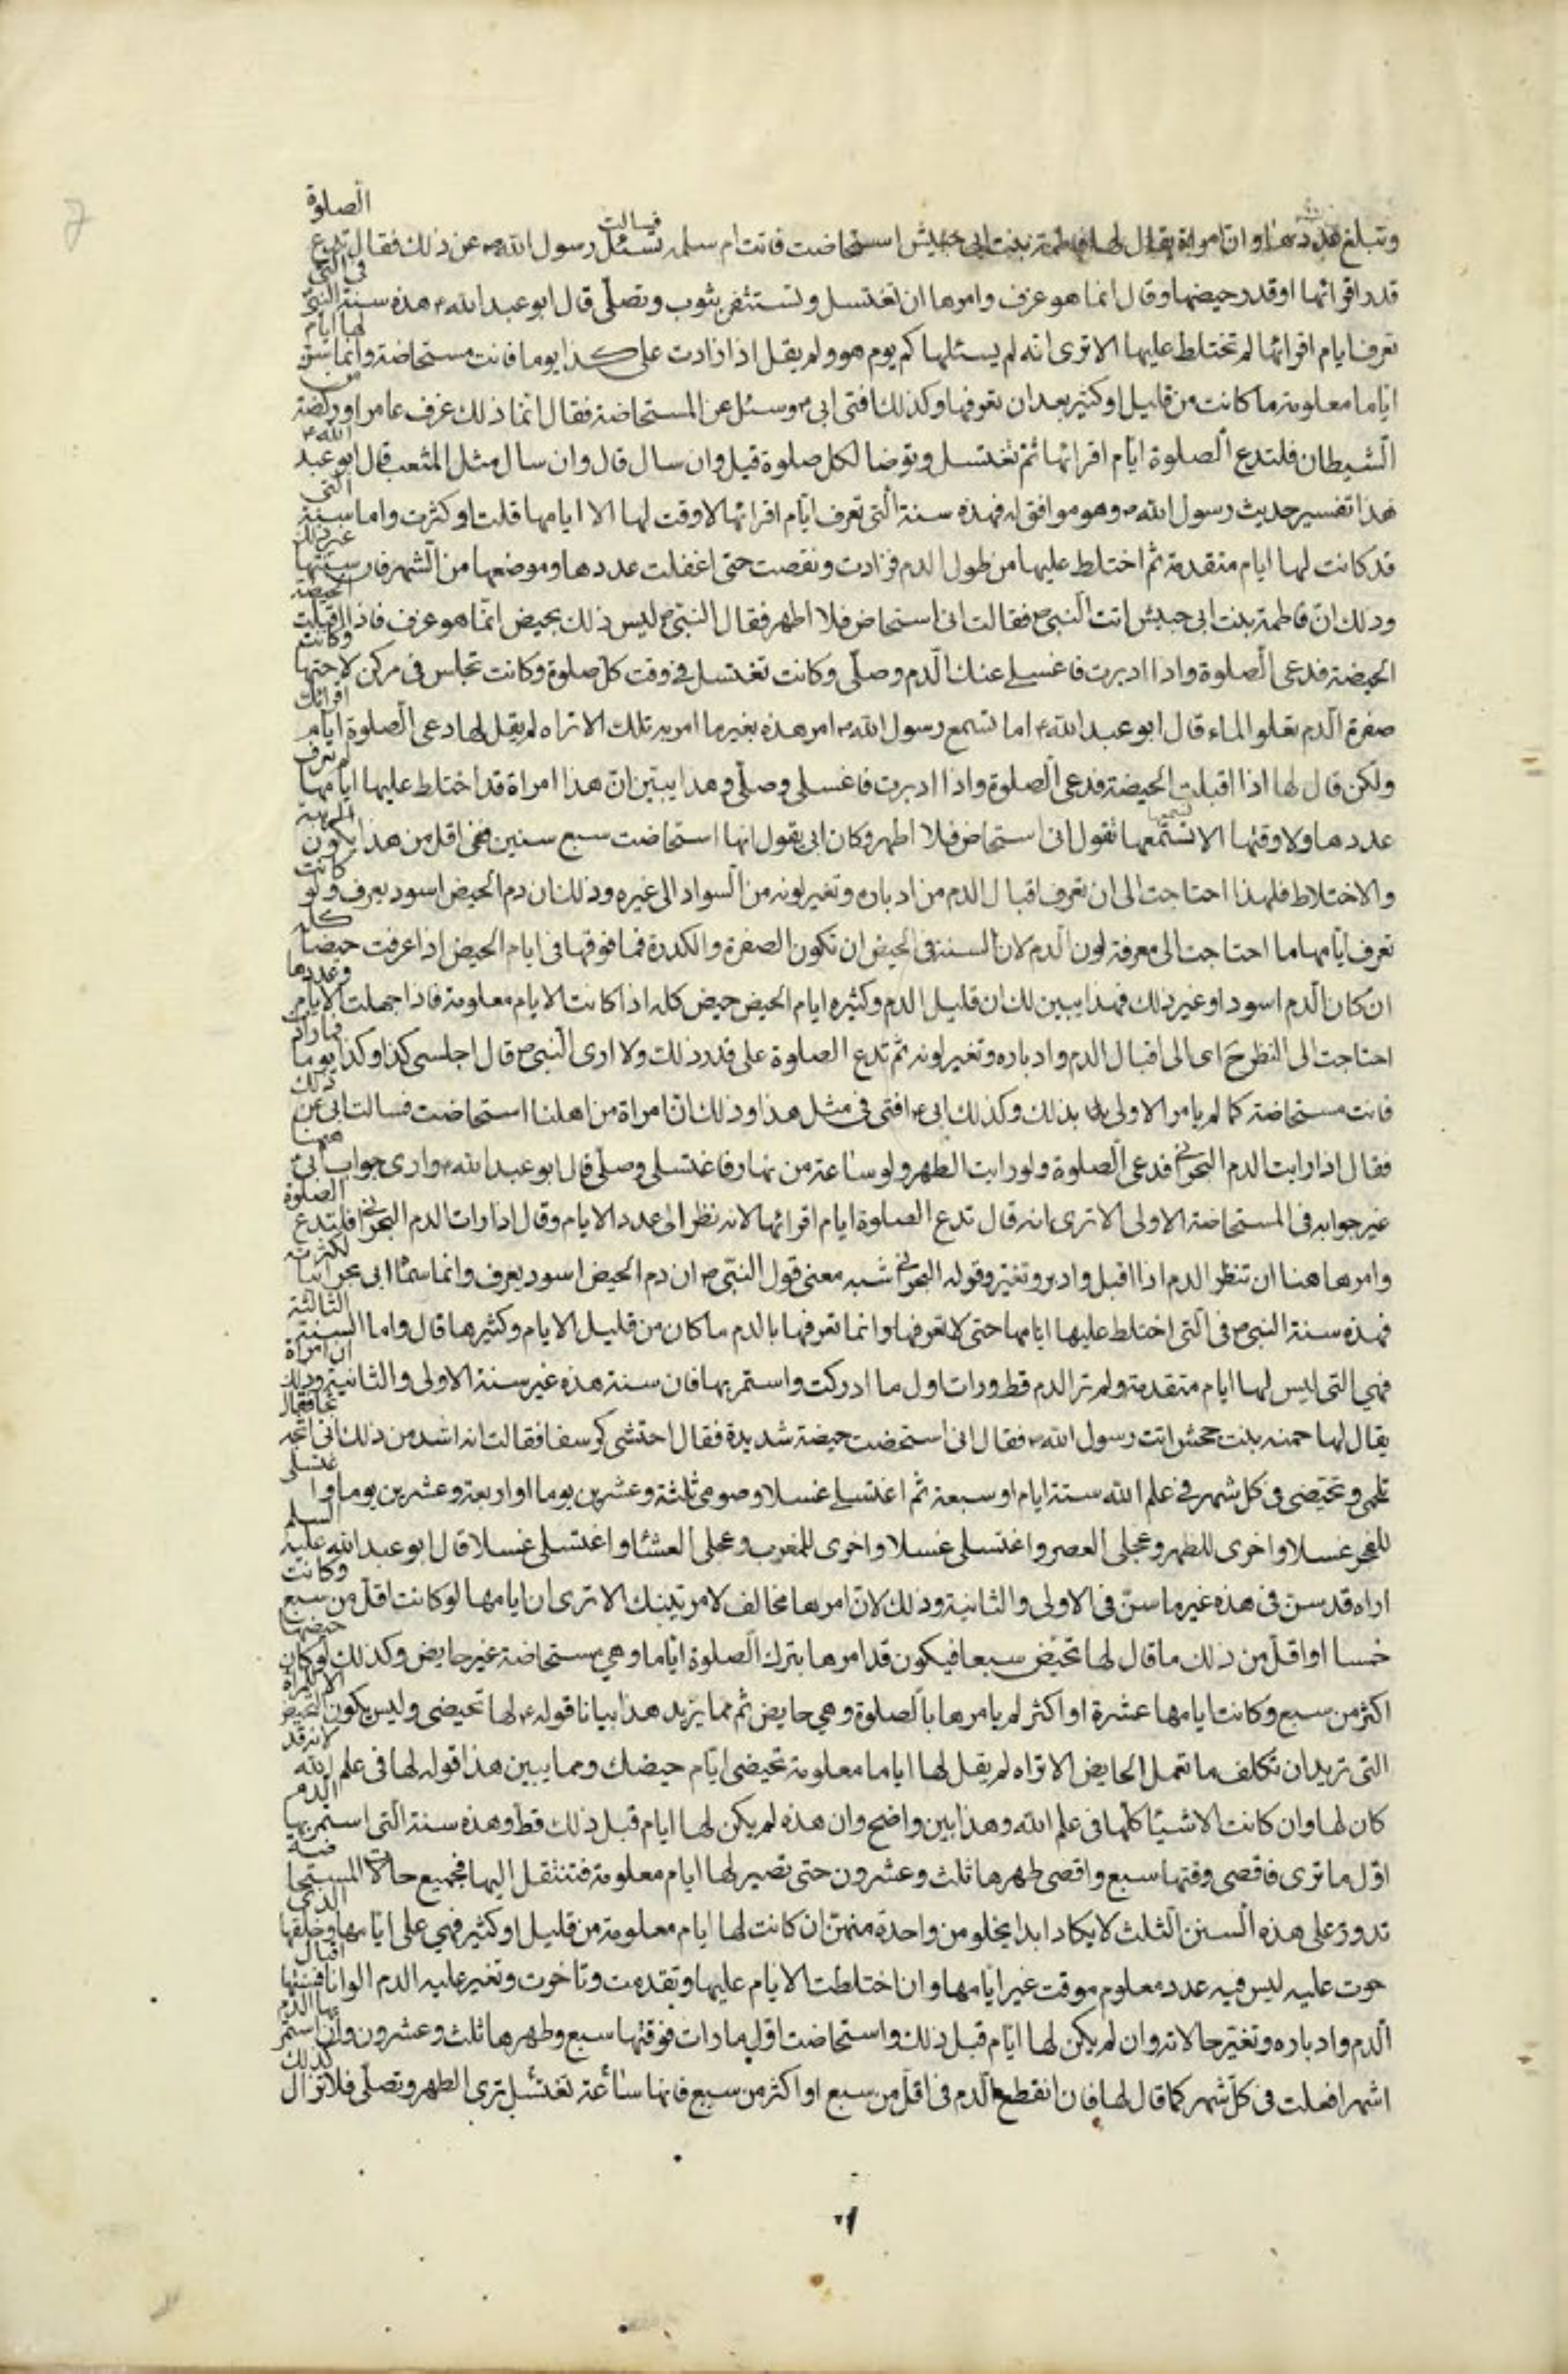 وتبلغ عددها وان امراة يقال لها فاطمة بنت ابى حبيش استحاضت فاتت ام سلمه فسالت رسول الله ص عن ذلك فقال تدع الصلوة
قدر اقرائها او قدر حيضها وقال انما هو عزف وامرها ان تغتسل وتستثفر بثوب وتصلّى قال ابو عبد الله ع هذه سنة النبىّ فى التى
تعرف ايام اقرائها لم تختلط عليها الا ترى انه لم يسئلها كم يوم هو ولم يقل اذا زادت على كذا يوما فانت مستحاضة وانما سنّ لها ايام
اياما معلومة ما كانت من قليل او كثير بعد ان تعرفها وكذلك افتى ابى ع وسئل عن المستحاضة فقال انما ذلك عزف عامر او ركضة من
الشيطان فلتدع الصلوة ايام اقرائها ثم تغتسل وتوضا لكل صلوة قيل وان سال قال وان سال مثل المثعب قال ابو عبد الله ع
هذا تفسير حديث رسول الله ص وهو موافق له فهذه سنة التى تعرف ايام اقرائها لا وقت لها الا ايامها قلت او كثرت واما سنة التى
قد كانت لها ايام متقدمة ثم اختلط عليها من طول الدم فزادت ونقصت حتى اغفلت عددها وموضعها من الشهر فان سنتها غير ذلك
وذلك ان فاطمة بنت ابى حبيش اتت النبى ص فقالت انى استحاض فلا اطهر فقال النبى ص ليس ذلك بحيض انّما هو عزف فاذا اقبلت الحيضة
الحيضة فدعى الصلوة واذا ادبرت فاغسلى عنك الدم وصلّى وكانت تغتسل فى وقت كل صلوة وكانت تجلس فى مركن لاختها وكانت
صفرة الدم تعلو الماء قال ابو عبد الله ع اما تسمع رسول الله ص امر هذه بغير ما امر به تلك الا تراه لم يقل لها دعى الصلوة ايام اقرائك
ولكن قال لها اذا اقبلت الحيضة فدعى الصلوة واذا ادبرت فاغسلى وصلّى وهذا يبيّن انّ هذا امراة قد اختلط عليها ايامها لم تعرف
عددها ولا وقتها الا تسمعها تقول انى استحاض فلا اطهر وكان ابى يقول انها استحاضت سبع سنين ففى اقل من هذا يكون الريبة
والاختلاط فلهذا احتاجت الى ان تعرف اقبال الدم من ادباره وتغير لونه من السواد الى غيره وذلك ان دم الحيض اسود يعرف ولو كانت
تعرف ايامها ما احتاجت الى معرفة لون الدم لان السنة فى الحيض ان تكون الصفرة والكدرة فما فوقها فى ايام الحيض اذا عرفت حيضا كله
ان كان الدم اسود او غير ذلك فهذا يبين لك ان قليل الدم وكثيره ايام الحيض حيض كله اذا كانت الايام معلومة فاذا جهلت الايام وعددها
احتاجت الى النظر ح اى الى اقبال الدم وادباره وتغير لونه ثم تدع الصلوة على قدر ذلك ولا ارى النبى ص قال اجلسى كذا وكذا يوما فما زاد
فانت مستحاضة كما لم يامر الاولى بذلك وكذلك ابى ع افتى فى مثل هذا وذلك ان امراة من اهلنا استحاضت فسالت ابى عن ذلك
فقال اذا رايت الدم البحرانى فدعى الصلوة ولو رايت الطهر ولو ساعة من نهار فاغتسلى وصلّى قال ابو عبد الله ع وارى جواب ابى ع ههنا
غير جوابه فى المستحاضة الاولى الا ترى انه قال تدع الصلوة ايام اقرائها لانه نظر الى عدد الايام وقال اذا رات الدم البحرانى فلتدع الصلوة
وامرها هنا ان تنظر الدم اذا اقبل وادبر وتغير وقوله البحرانى شبه معنى قول النبّى ص ان دم الحيض اسود يعرف وانما سمّا ابى بحرانيا لكثرته
فهذه سنة النبى ص فى التى اختلط عليها ايامها حتى لا تعرفها وانما تعرفها بالدم ما كان من قليل الايام وكثيرها قال واما السنة الثالثة
فهى التى ليس لها ايام متقدمة ولم تر الدم قط ورات اول ما ادركت واستمر بها فان سنة هذه غير سنة الاولى والثانية وذلك ان امراة
يقال لها حمنه بنت جحش اتت رسول الله ص فقال انى استحضت حيضة شديدة فقال احتشى كرسفا فقالت انه اشد من ذلك انى اثجه ثجا فقال
تلجمى وتحيّضى فى كل شهر فى علم الله ستة ايام او سبعة ثم اغتسلى غسلا وصومى ثلثة وعشرين يوما او اربعة وعشرين يوما واغتسلى
للفجر غسلا واخرى للظهر وعجلى العصر واغتسلى غسلا واخرى للمغرب وعجلى العشا واغتسلى غسلا قال ابو عبد الله عليه السلم
اراه قد سن فى هذه غير ما سنّ فى الاولى والثانية وذلك لانّ امرها مخالف لامر تينك الا ترى ان ايامها لو كانت اقل من سبع وكانت
خمسا او اقل من ذلك ما قال لها تحيّضى سبعا فيكون قد امرها بترك الصلوة اياما وهى مستحاضة غير حايض وكذلك لو كان حيضها
اكثر من سبع وكانت ايامها عشرة او اكثر لم يامرها بالصلوة وهى حايض ثم مما يزيد هذا بيانا قوله ع لها تحيضى وليس يكون التحيض الا للمراة
التى تريد ان تكلف ما تعمل الحايض الا تراه لم يقل لها اياما معلومة تحيضى ايّام حيضك ومما يبين هذا قوله لها فى علم الله لانه قد
كان لها وان كانت الاشيا كلها فى علم الله وهذا بين واضح وان هذه لم يكن لها ايام قبل ذلك قط وهذه سنة التى استمر بها الدم
اوّل ما ترى فاقصى وقتها سبع واقصى طهرها ثلث وعشرون حتى تصير لها ايام معلومة فتنتقل اليها فجميع حالات المستحاضة
تدور على هذه السنن الثلث لا يكاد ابدا يخلو من واحدة منهن ان كانت لها ايام معلومة من قليل او كثير فهى على ايامها وخلقها الذى
جرت عليه ليس فيه عدد معلوم موقت غير ايامها وان اختلطت الايام عليها وتقدمت وتاخرت وتغير عليه الدم الوانا فسنتها اقبال
الدم وادباره وتغيّر حالاته وان لم يكن لها ايّام قبل ذلك واستحاضت اوّل ما رات فوقتها سبع وطهرها ثلث وعشرون وان استمر بها الدم
اشهرا فعلت فى كل شهر كما قال لها فان انقطع الدم فى اقل من سبع او اكثر من سبع فانها ساعة تغتسل ترى الطهر وتصلّى فلا تزال كذلك